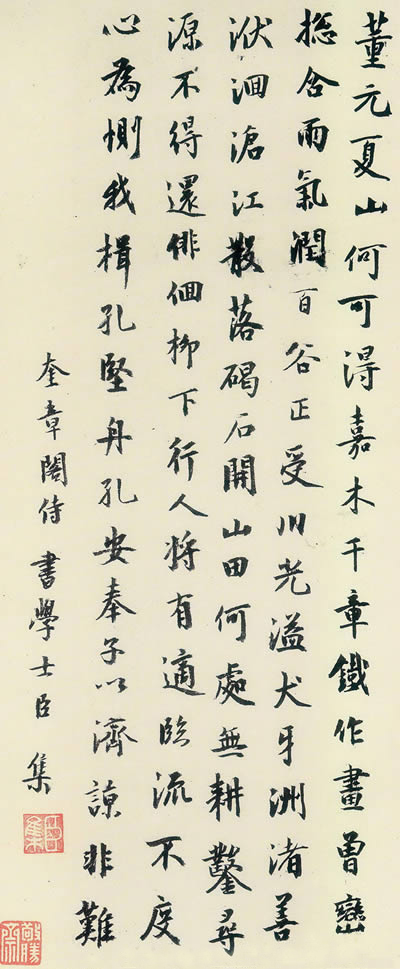 董元夏山何可得嘉木千章鐵作畫曾巒
揔含雨氣潤百谷正受川光溢犬牙洲渚善
洑洄滄江散落碣石開山田何處無耕鑿尋
源不得還俳佪柳下行人將有適臨流不度
心為惻我楫孔堅舟孔安奉子以濟諒非難
奎章閣侍書學士臣集
敬勝齋